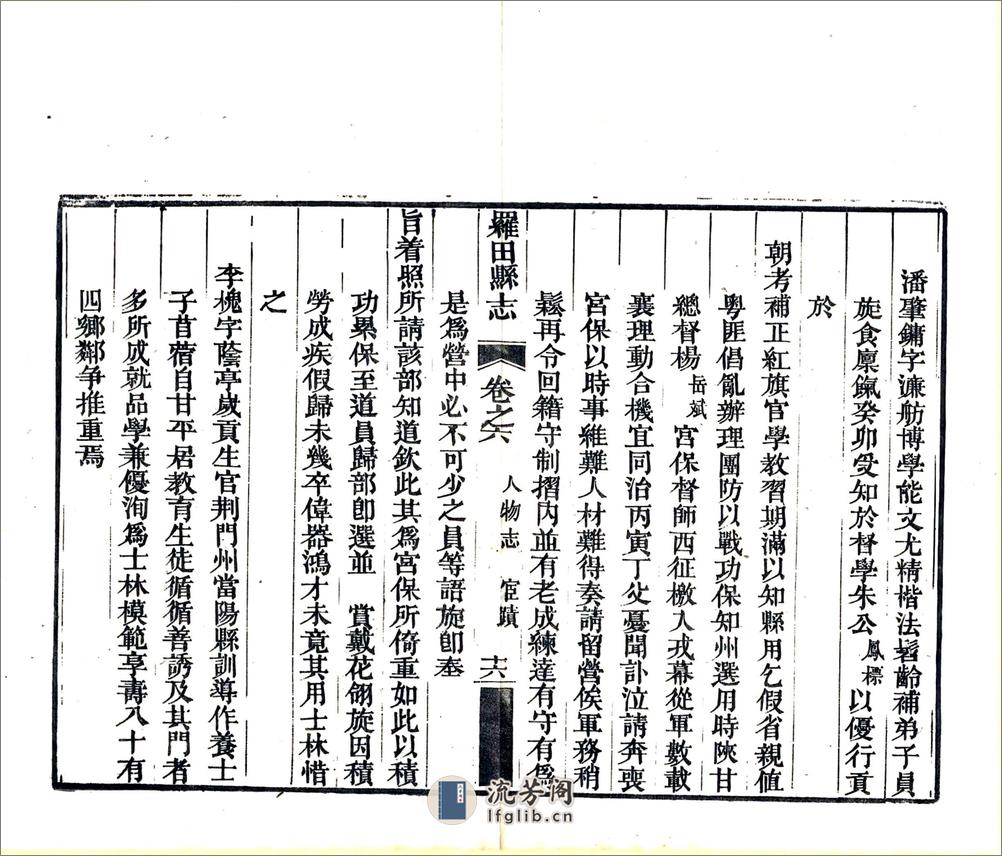 潘肇鏞字濂舫博學能文尤精楷法髫齡補弟子員
旋食廩餼癸卯受知於督學朱公鳳標以優行貢
於
朝考補正紅旗官學教習期滿以知縣用乞假省親值
粵匪倡亂辦理團防以戰功保知州選用時陝甘
總督楊岳斌宮保督師西征檄入戎幕從軍數載
襄理動合機宜同治丙寅丁父憂聞訃泣請奔喪
宮保以時事維難人材難得奏請留營俟軍務稍
鬆再令回籍守制摺內並有老成練達有守有爲
羅田縣志 卷之六 人物志 宦蹟 十六
是爲營中必不可少之員等語旋卽奉
旨着照所請該部知道欽此其爲宮保所倚重如此以積
功累保至道員歸部卽選並 賞戴花翎旋因積
勞成疾假歸未幾卒偉器鴻才未竟其用士林惜
之
李槐字蔭亭歲貢生官荆門州當陽縣訓導作養士
子苜蓿自甘平居教育生徒循循善誘及其門者
多所成就品學兼優洵爲士林模範享壽八十有
四鄉鄰争推重焉
流芳阁
lfglib.cn